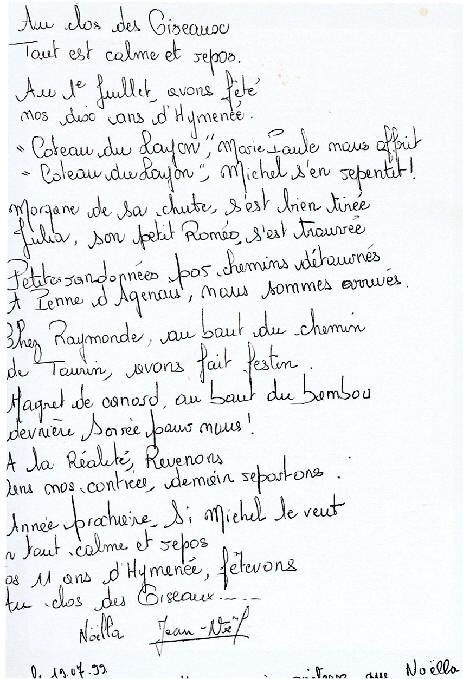 Au clos des Oiseaux
Tout est calme et repos.
Au 1e Juillet, avons fêté
nos dix ans d'Hymenée.
" Coteau du Layon", Marie Paule nous offrit
" Coteau du Layon", Michel s'en repentit!
Morgane de sa chute, s'est bien tirée
Julia, son petit Roméo, s'est trouvée
Petites randonnées par chemins détournés
A Penne d'Agenais, nous sommes arrivés.
Chez Raymonde, au bout du chemin
de Taurin, avons fait festin.
Magret de canard, au bout du bambou
dernière soirée pour nous!
A la Réalité, Revenons
dens nos contrées, demain repartons.
Année prochaine, Si Michel le veut
n tout calme et repos
os 11 ans d'Hymenée, fêterons
Au clos des Oiseaux.....
Noëlla Jean-Noël
19.07.99
que Noëlla